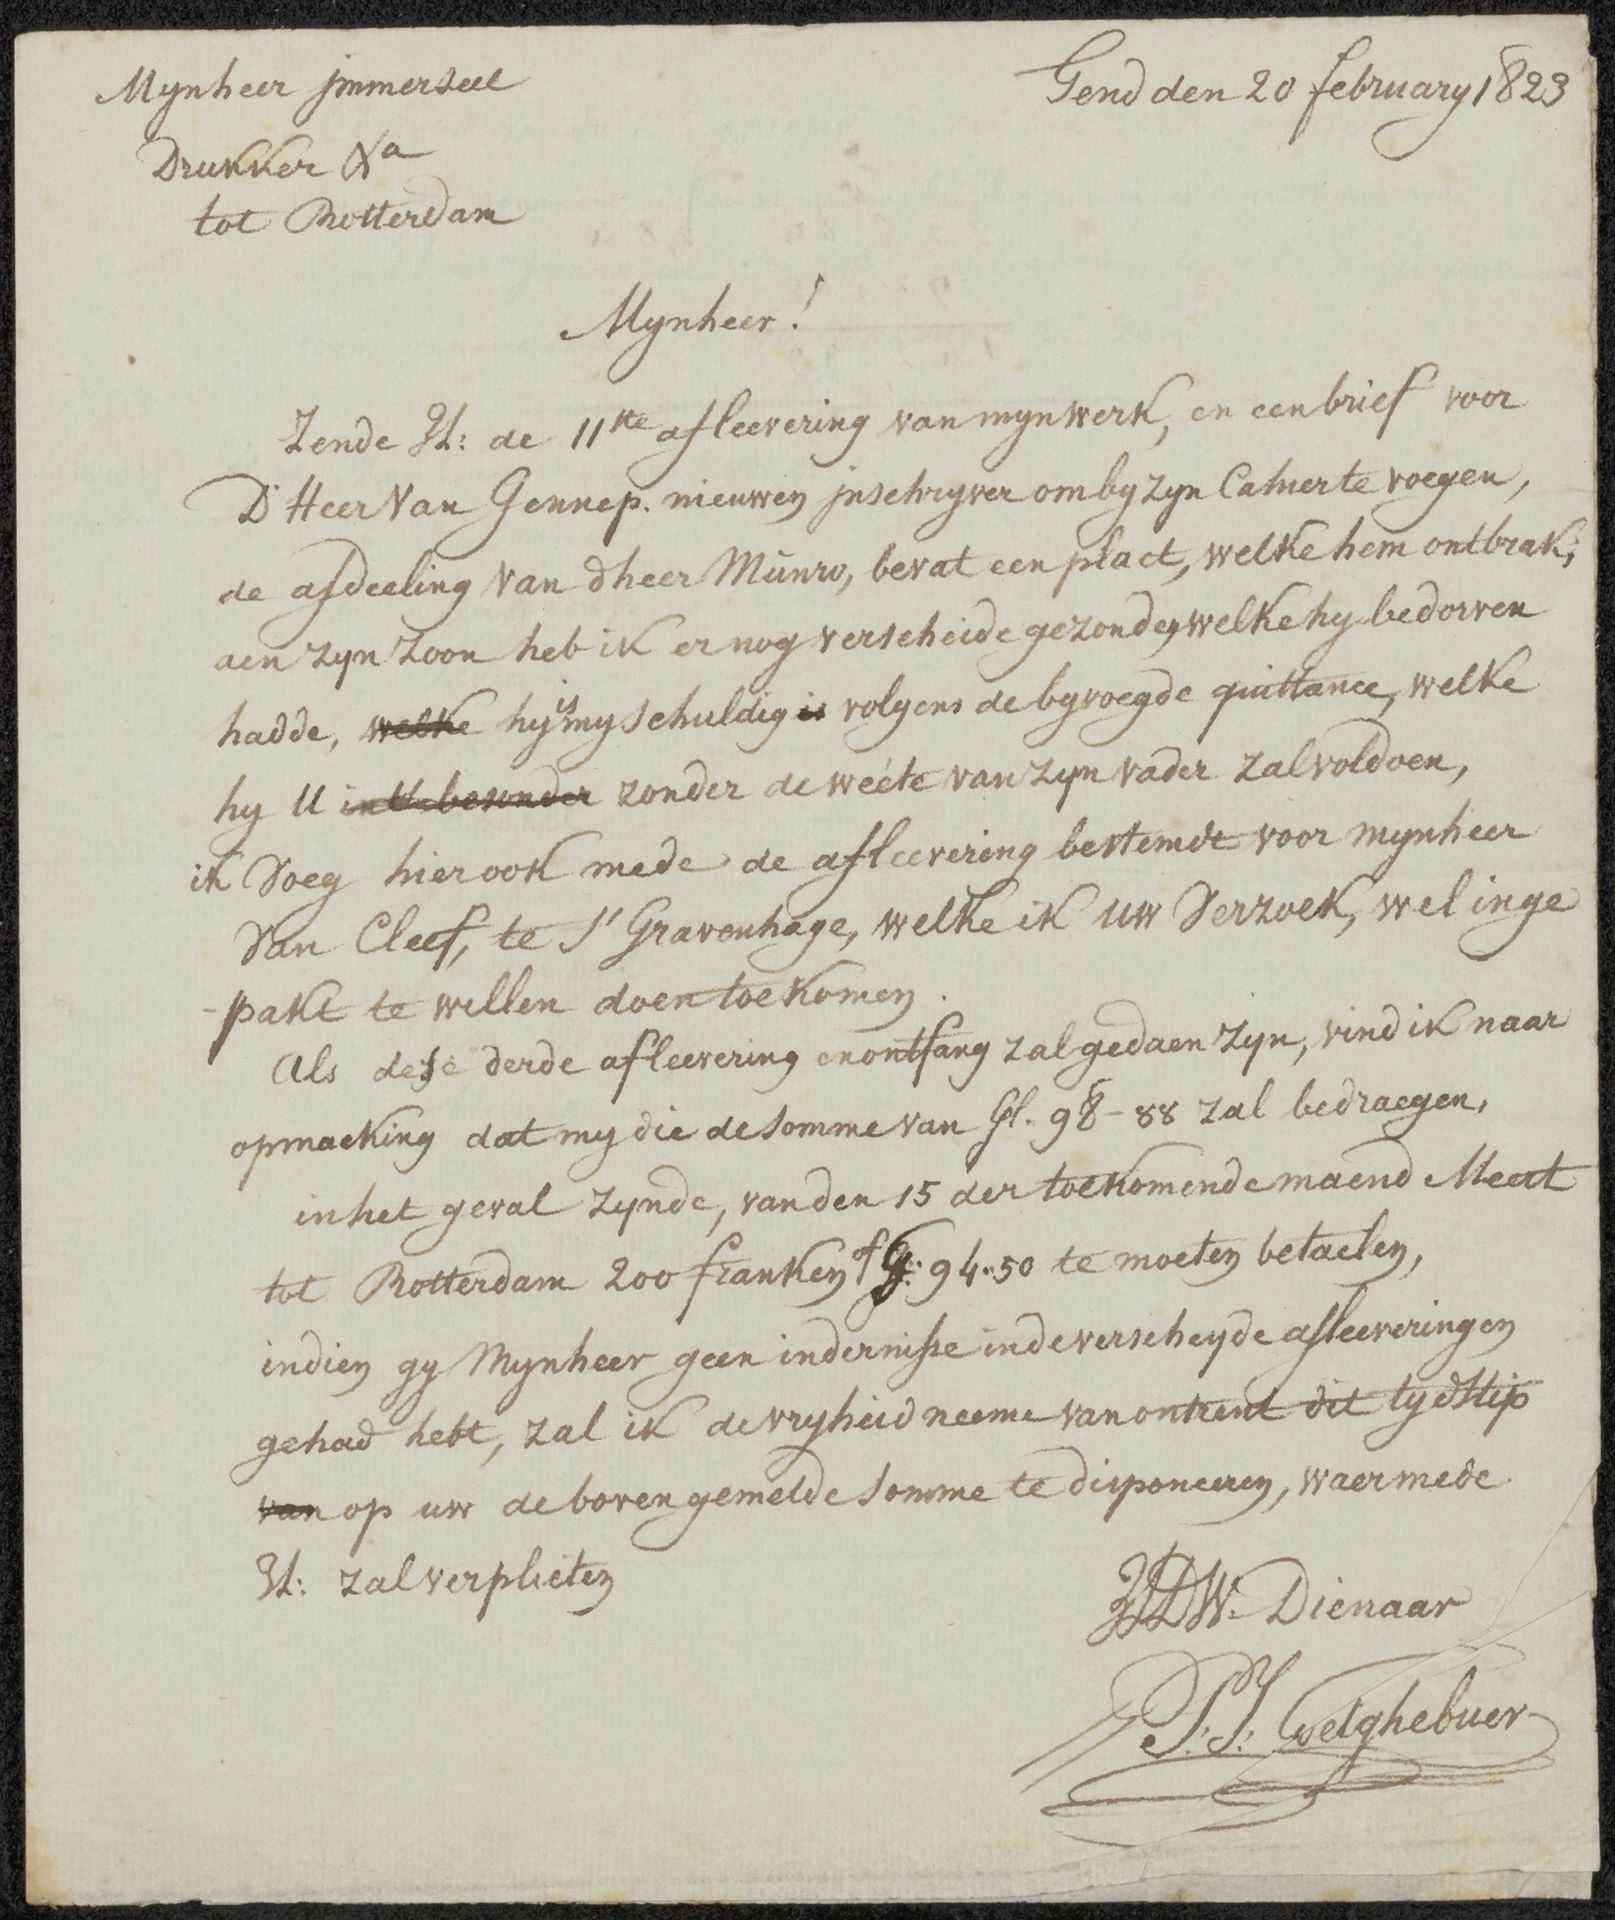 Gend den 20 february 1823
Mynheer jmmerseel
Drukker &a
tot Rotterdam
Mynheer!
Zende Ul: de 11de afleevering van myn werk, en een brief voor
D'Heer Van Gennep. nieuwen jnschryver om by zyn Cahier te voegen,
de afdeeling van dheer Munro, bevat een plaet, welke hem ontbrak;
aen zyn zoon heb ik er nog verscheide gezonden welke hy bedorven
hadde, welke hy is my schuldig is volgens de byvoegde quittance, welke
hy U in't besonder zonder de weéte van zyn vader zal voldoen,
ik Voeg hier ook mede de afleevering bestemdt voor mynheer
Van Cleef, te S' Gravenhage, welke ik uw Verzoek, wel inge
-pakt te willen doen toekomen.
Als dese derde afleevering en ontfang zal gedaen zyn, vind ik naar
opmaeking dat my die de somme van Gl. 98-88 zal bedraegen,
in het geval zynde, van den 15 der toekomende maend Meert
tot Rotterdam 200 franken of G: 94..50 te moeten betaelen,
indien gy Mynheer geen indernisse in de verscheyde afleeveringen
gehad hebt, zal ik de vryheid neeme van ontrent dit tydstip
van op uw de boven gemelde somme te disponeeren, waermede
Ul: zal verplieten
UEDW. Dienaar
P: J: Goetghebuer